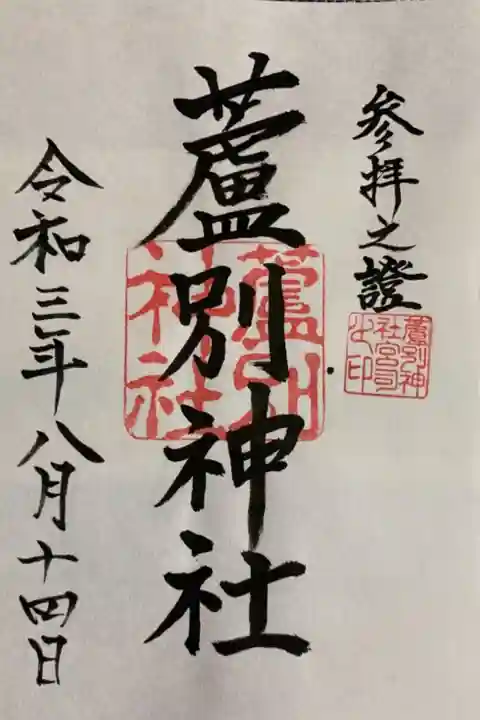 参拝之證
蘆別神
社宮司
之印
蘆別神社
蘆別
神社
令和三年八月十四日